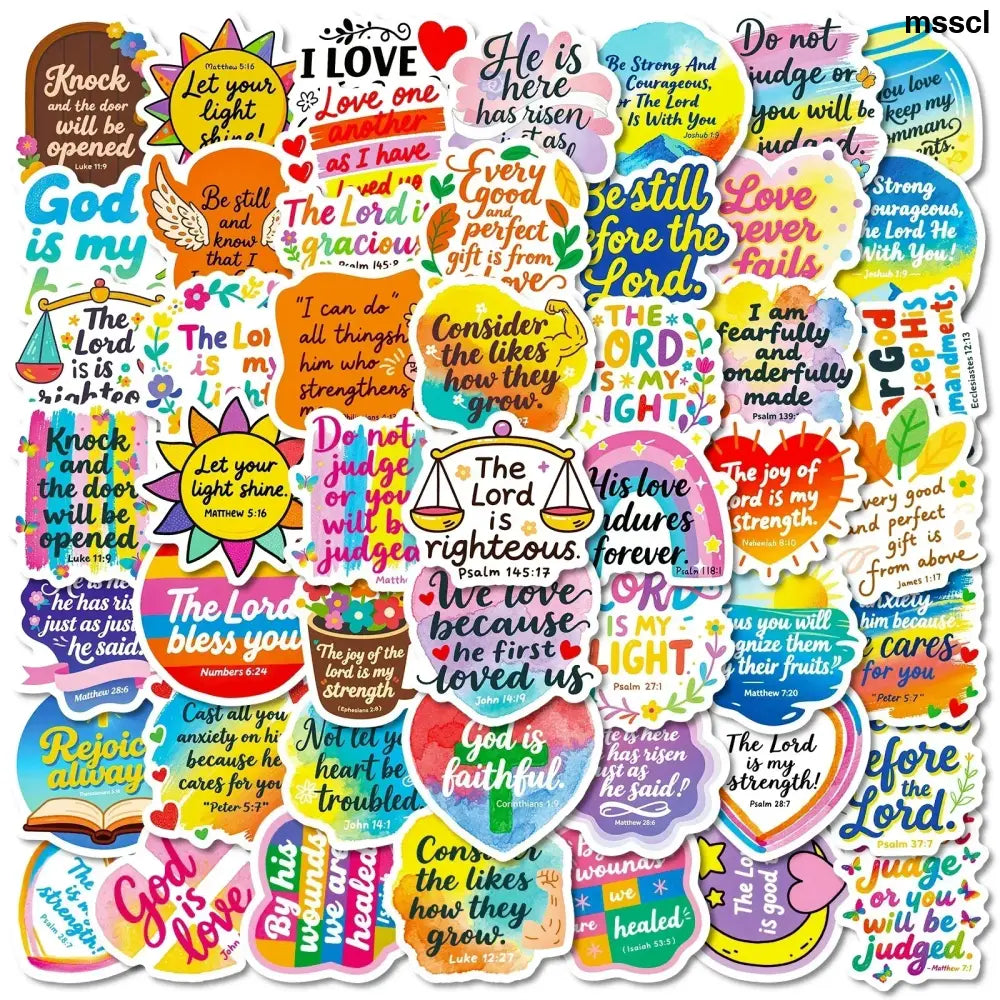 msscl
Knock
and the door
will be
opened
Luke 11:9
Matthew 5:16
Let your
light
shine!
I LOVE
Love one
another
as I have
loved
He is
here
has risen
just as
Be Strong And
Courageous,
The Lord
Is With You
Joshub 1:9
Do not
judge or
you will be
judged.
you love
keep my
God
is my
Be still
and
know
that I
The Lord is
gracious
Psalm 145:8
Every
good
and
perfect
gift is from
Be still
before the
Lord.
Love
never
fails
Strong
Courageous,
the Lord He
With You!
Joshub 1:9
The
Lord
is is
The Lor
is my
"I can do"
all thingsh
him who
strengthens
Consider
the likes
how they
grow.
THE
LORD
IS MY
LIGHT.
I am
fearfully
and
wonderfully
made
Psalm 139:"
God
Keep His
Ecclesiastes 12:13
Knock
and
the door
will be
opened
Luke 11:9
Let your
light shine.
MATTHEW 5:16
Do not
judge
or you
will be
judged
Matth
The
Lord
is
righteous.
Psalm 145:17
His love
endures
forever.
Psaln 118:1
The joy of
Lord is my
strength.
Nehemiah 8:10
Every good
and perfect
gift is
from above
James 1:17
he has ris
just as just
he said!
Matthew 28:6
The Lord
bless you
Numbers 6:24
The joy of the
lord is my
strength
(Ephesians 2:8)
We love
because
he first
loved us
John 14:19
LORD
IS MY
LIGHT.
Psalm 27:1
us you will
recognize them
their fruits."
Matthew 7:20
anxiety
him because
he cares
for you
"Peter 5:7"
Rejoic
alway
Cast all you
anxiety on hi
because he
cares for you
"Peter 5:7"
Not let yo
heart be
troubled.
John 14:1
God is
faithful.
Corinthians 1:9
He is here
has risen
just as
he said!
Matthew 28:6
The Lord
is my
strength!
Psalm 28:7
before
the
Lord.
Psalm 37:7
The
is
strength!
Psalm 28:7
God
is
love
John
By his
wounds
we are
healed
Consider
the likes
how they
grow.
Luke 12:27
By
wounds
we
are
healed
(Isaiah 53:5)
The Lo
is good
judge
or you
will be
judged.
- Matthew 7:1